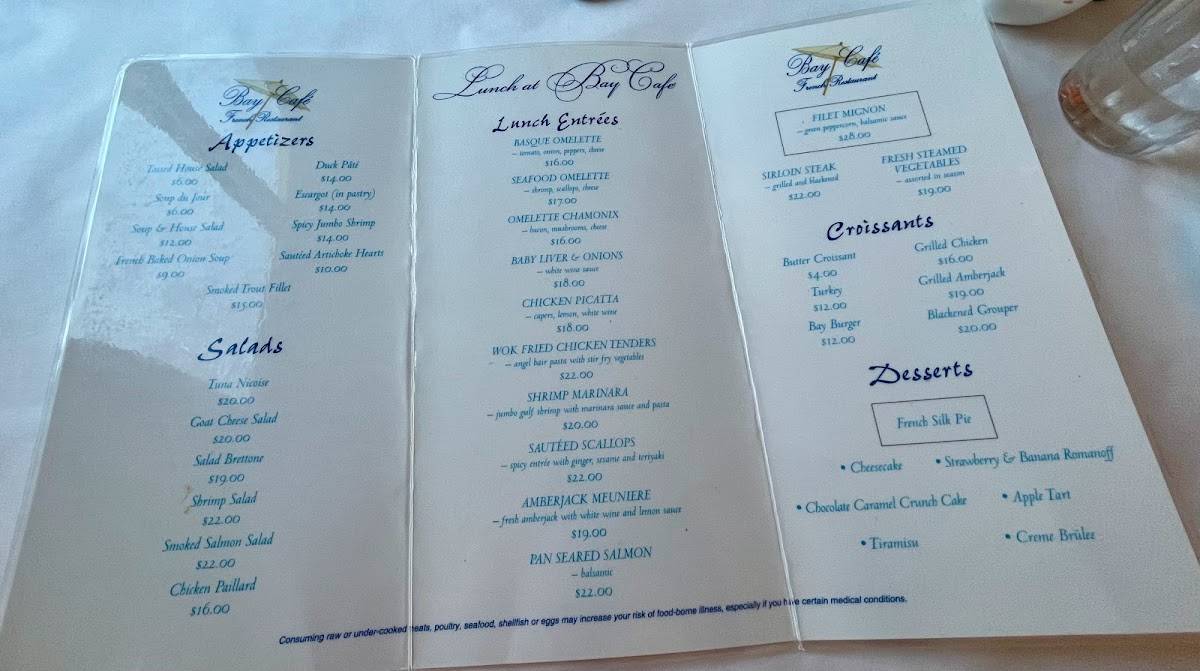 Bay Café
French Restaurant
Appetizers
Tossed House Salad
$6.00
Soup du Jour
$6.00
Soup & House Salad
$12.00
French Baked Onion Soup
$9.00
Duck Pâté
$14.00
Escargot (in pastry)
$14.00
Spicy Jumbo Shrimp
$14.00
Sautéed Artichoke Hearts
$10.00
Smoked Trout Fillet
$15.00
Salads
Tuna Nicoise
$20.00
Goat Cheese Salad
$20.00
Salad Brettone
$19.00
Shrimp Salad
$22.00
Smoked Salmon Salad
$22.00
Chicken Paillard
$16.00
Lunch at Bay Cafe
Lunch Entrées
BASQUE OMELETTE
– tomato, onion, peppers, cheese
$16.00
SEAFOOD OMELETTE
– shrimp, scallops, cheese
$17.00
OMELETTE CHAMONIX
– bacon, mushrooms, cheese
$16.00
BABY LIVER & ONIONS
– white wine sauce
$18.00
CHICKEN PICATTA
– capers, lemon, white wine
$18.00
WOK FRIED CHICKEN TENDERS
– angel hair pasta with stir fry vegetables
$22.00
SHRIMP MARINARA
– jumbo gulf shrimp with marinara sauce and pasta
$20.00
SAUTÉED SCALLOPS
– spicy entrée with ginger, sesame and teriyaki
$22.00
AMBERJACK MEUNIERE
– fresh amberjack with white wine and lemon sauce
$19.00
PAN SEARED SALMON
– balsamic
$22.00
Bay Café
French Restaurant
FILET MIGNON
– green peppercorn, balsamic sauce
$28.00
SIRLOIN STEAK
– grilled and blackened
$22.00
FRESH STEAMED
VEGETABLES
– assorted in season
$19.00
Croissants
Butter Croissant
$4.00
Turkey
$12.00
Bay Burger
$12.00
Grilled Chicken
$16.00
Grilled Amberjack
$19.00
Blackened Grouper
$20.00
Desserts
French Silk Pie
• Cheesecake
• Strawberry & Banana Romanoff
• Chocolate Caramel Crunch Cake
• Apple Tart
• Tiramisu
• Creme Brûlee
Consuming raw or under-cooked meats, poultry, seafood, shellfish or eggs may increase your risk of food-borne illness, especially if you have certain medical conditions.